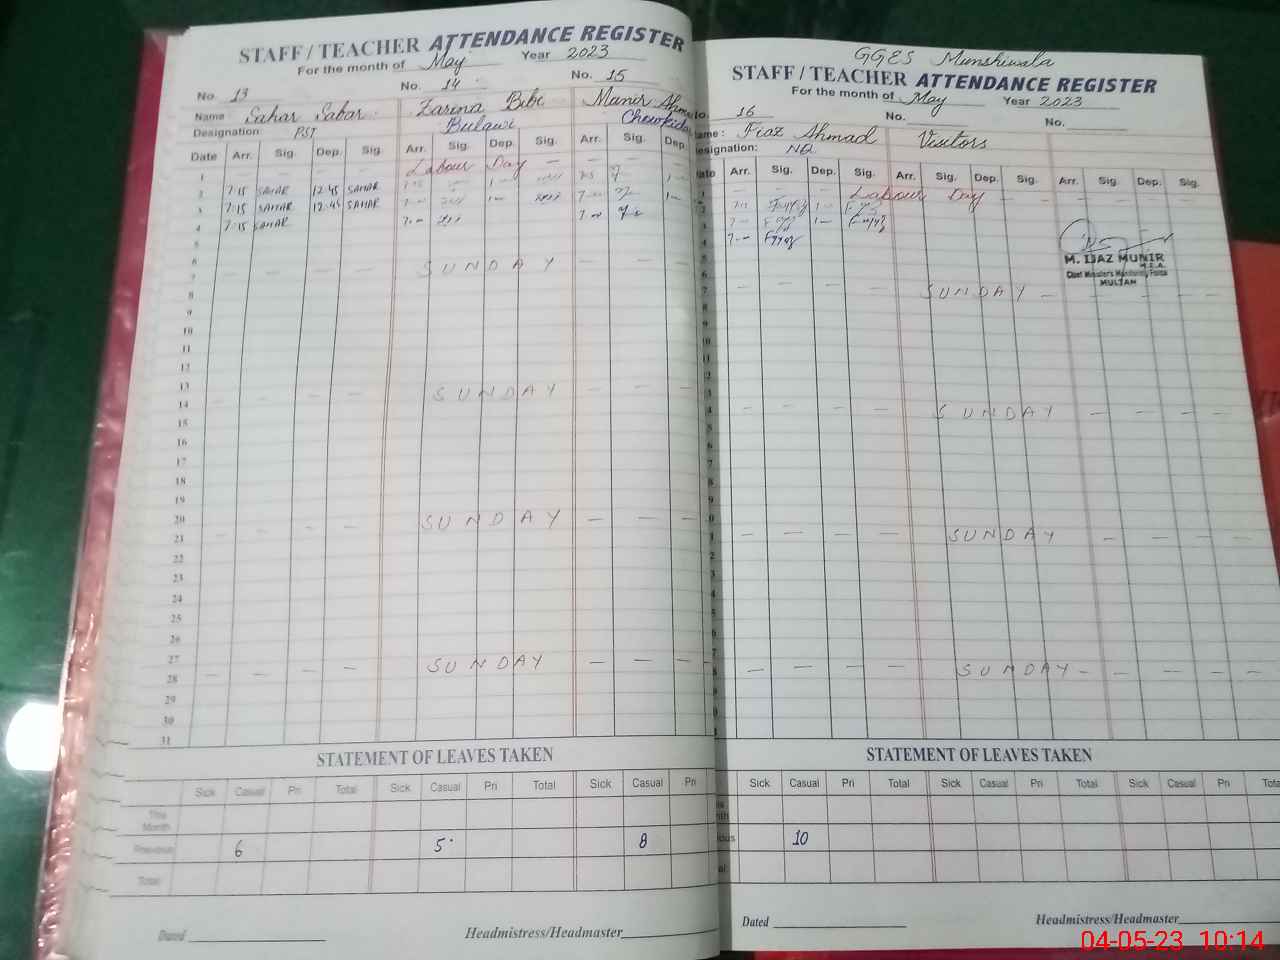 STAFF / TEACHER ATTENDANCE REGISTER
For the month of May Year 2023
No. 13 No. 14 No. 15
Name Sahar Sabar Zarina Bibi Munir Ahm
Designation: PST Bulawi Chowkida
Date Arr. Sig. Dep. Sig. Arr. Sig. Dep. Sig. Arr. Sig. Dep.
1 Labour Day
2 7:15 SAHAR 12:45 SAHAR
3 7:15 SAHAR 12:45 SAHAR
4 7:15 SAHAR
5
6
7 SUNDAY
8
9
10
11
12
13
14 SUNDAY
15
16
17
18
19
20
21 SUNDAY
22
23
24
25
26
27
28 SUNDAY
29
30
31
STATEMENT OF LEAVES TAKEN
Sick Casual Pri Total Sick Casual Pri Total Sick Casual Pri
This Month
Previous 6 5 8
Total
Dated Headmistress/Headmaster
GGES Munshiwala
STAFF / TEACHER ATTENDANCE REGISTER
For the month of May Year 2023
No. 16 No. No.
ame : Fiaz Ahmad Visitors
esignation: NQ
ate Arr. Sig. Dep. Sig. Arr. Sig. Dep. Sig. Arr. Sig. Dep. Sig.
Labour Day
M. IJAZ MUNIR
M.E.A.
Chief Minister's Monitoring Force
MULTAN
SUNDAY
SUNDAY
SUNDAY
SUNDAY
STATEMENT OF LEAVES TAKEN
Sick Casual Pri Total Sick Casual Pri Total Sick Casual Pri Tota
10
Dated Headmistress/Headmaster
04-05-23 10:14